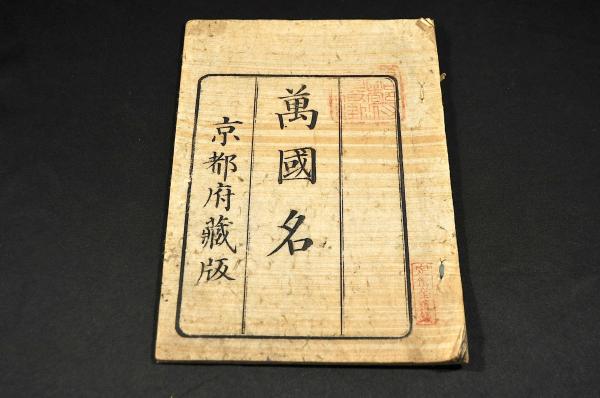 萬國名
京都府藏版